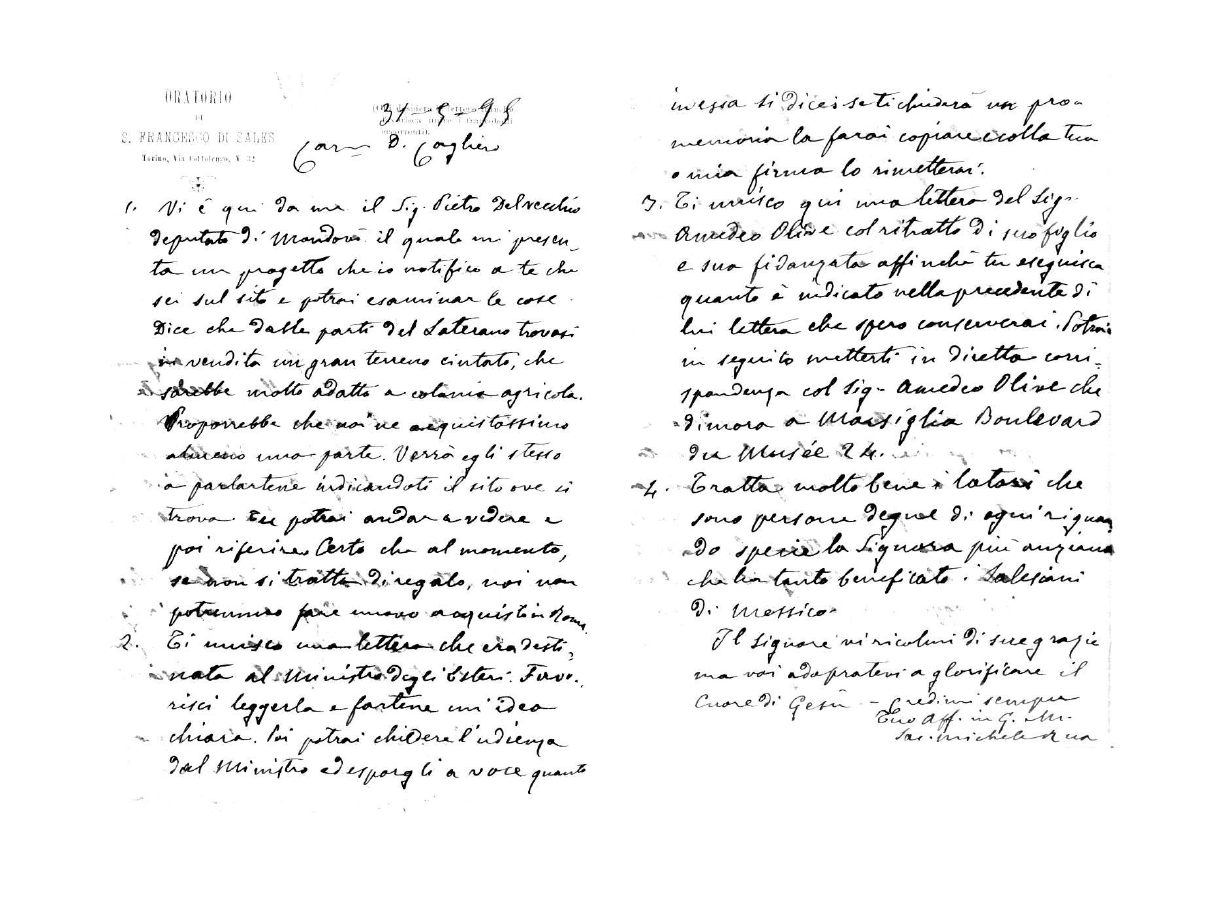 ORATORIO
DI
S. FRANCESCO DI SALES
Torino, Via Cottolengo, N. 32
31-5-95
Car. D. Cagliero
1. Vi è qui da me il Sig. Pietro Delvecchio
deputato di Mondovì il quale mi presen-
ta un progetto che io notifico a te che
sei sul sito e potrai esaminar le cose.
Dice che dalle parti del Laterano trovasi
in vendita un gran terreno cintato, che
sarebbe molto adatto a colonia agricola.
Proporrebbe che noi ne acquistassimo
almeno una parte. Verrà egli stesso
a parlartene indicandoti il sito ove si
trova. Tu potrai andar a vedere e
poi riferire. Certo che al momento,
se non si tratta di regalo, noi non
potremmo fare nuovo acquisti in Roma.
2. Ti unisco una lettera che era desti-
nata al Ministro degli Esteri. Favo-
risci leggerla e fartene un'idea
chiara. Poi potrai chiedere l'udienza
dal Ministro ed esporgli a voce quanto
in essa si dice; se ti chiederà un pro-
memoria la farai copiare e colla tua
o mia firma lo rimetterai.
3. Ti unisco qui una lettera del Sig.
Amedeo Olive col ritratto di suo figlio
e sua fidanzata affinchè tu eseguisca
quanto è indicato nella precedente di
lui lettera che spero conserverai. Potrai
in seguito metterti in diretta corri-
spondenza col Sig. Amedeo Olive che
dimora a Marsiglia Boulevard
du Musée 24.
4. Tratta molto bene i latori che
sono persone degne di ogni riguar
do specie la Signora più anziana
che ha tanto beneficato i Salesiani
di Messico.
Il Signore vi ricolmi di sue grazie
ma voi adopratevi a glorificare il
Cuore di Gesù - Credimi sempre
Tuo Aff. in G. M.
Sac. Michele Rua